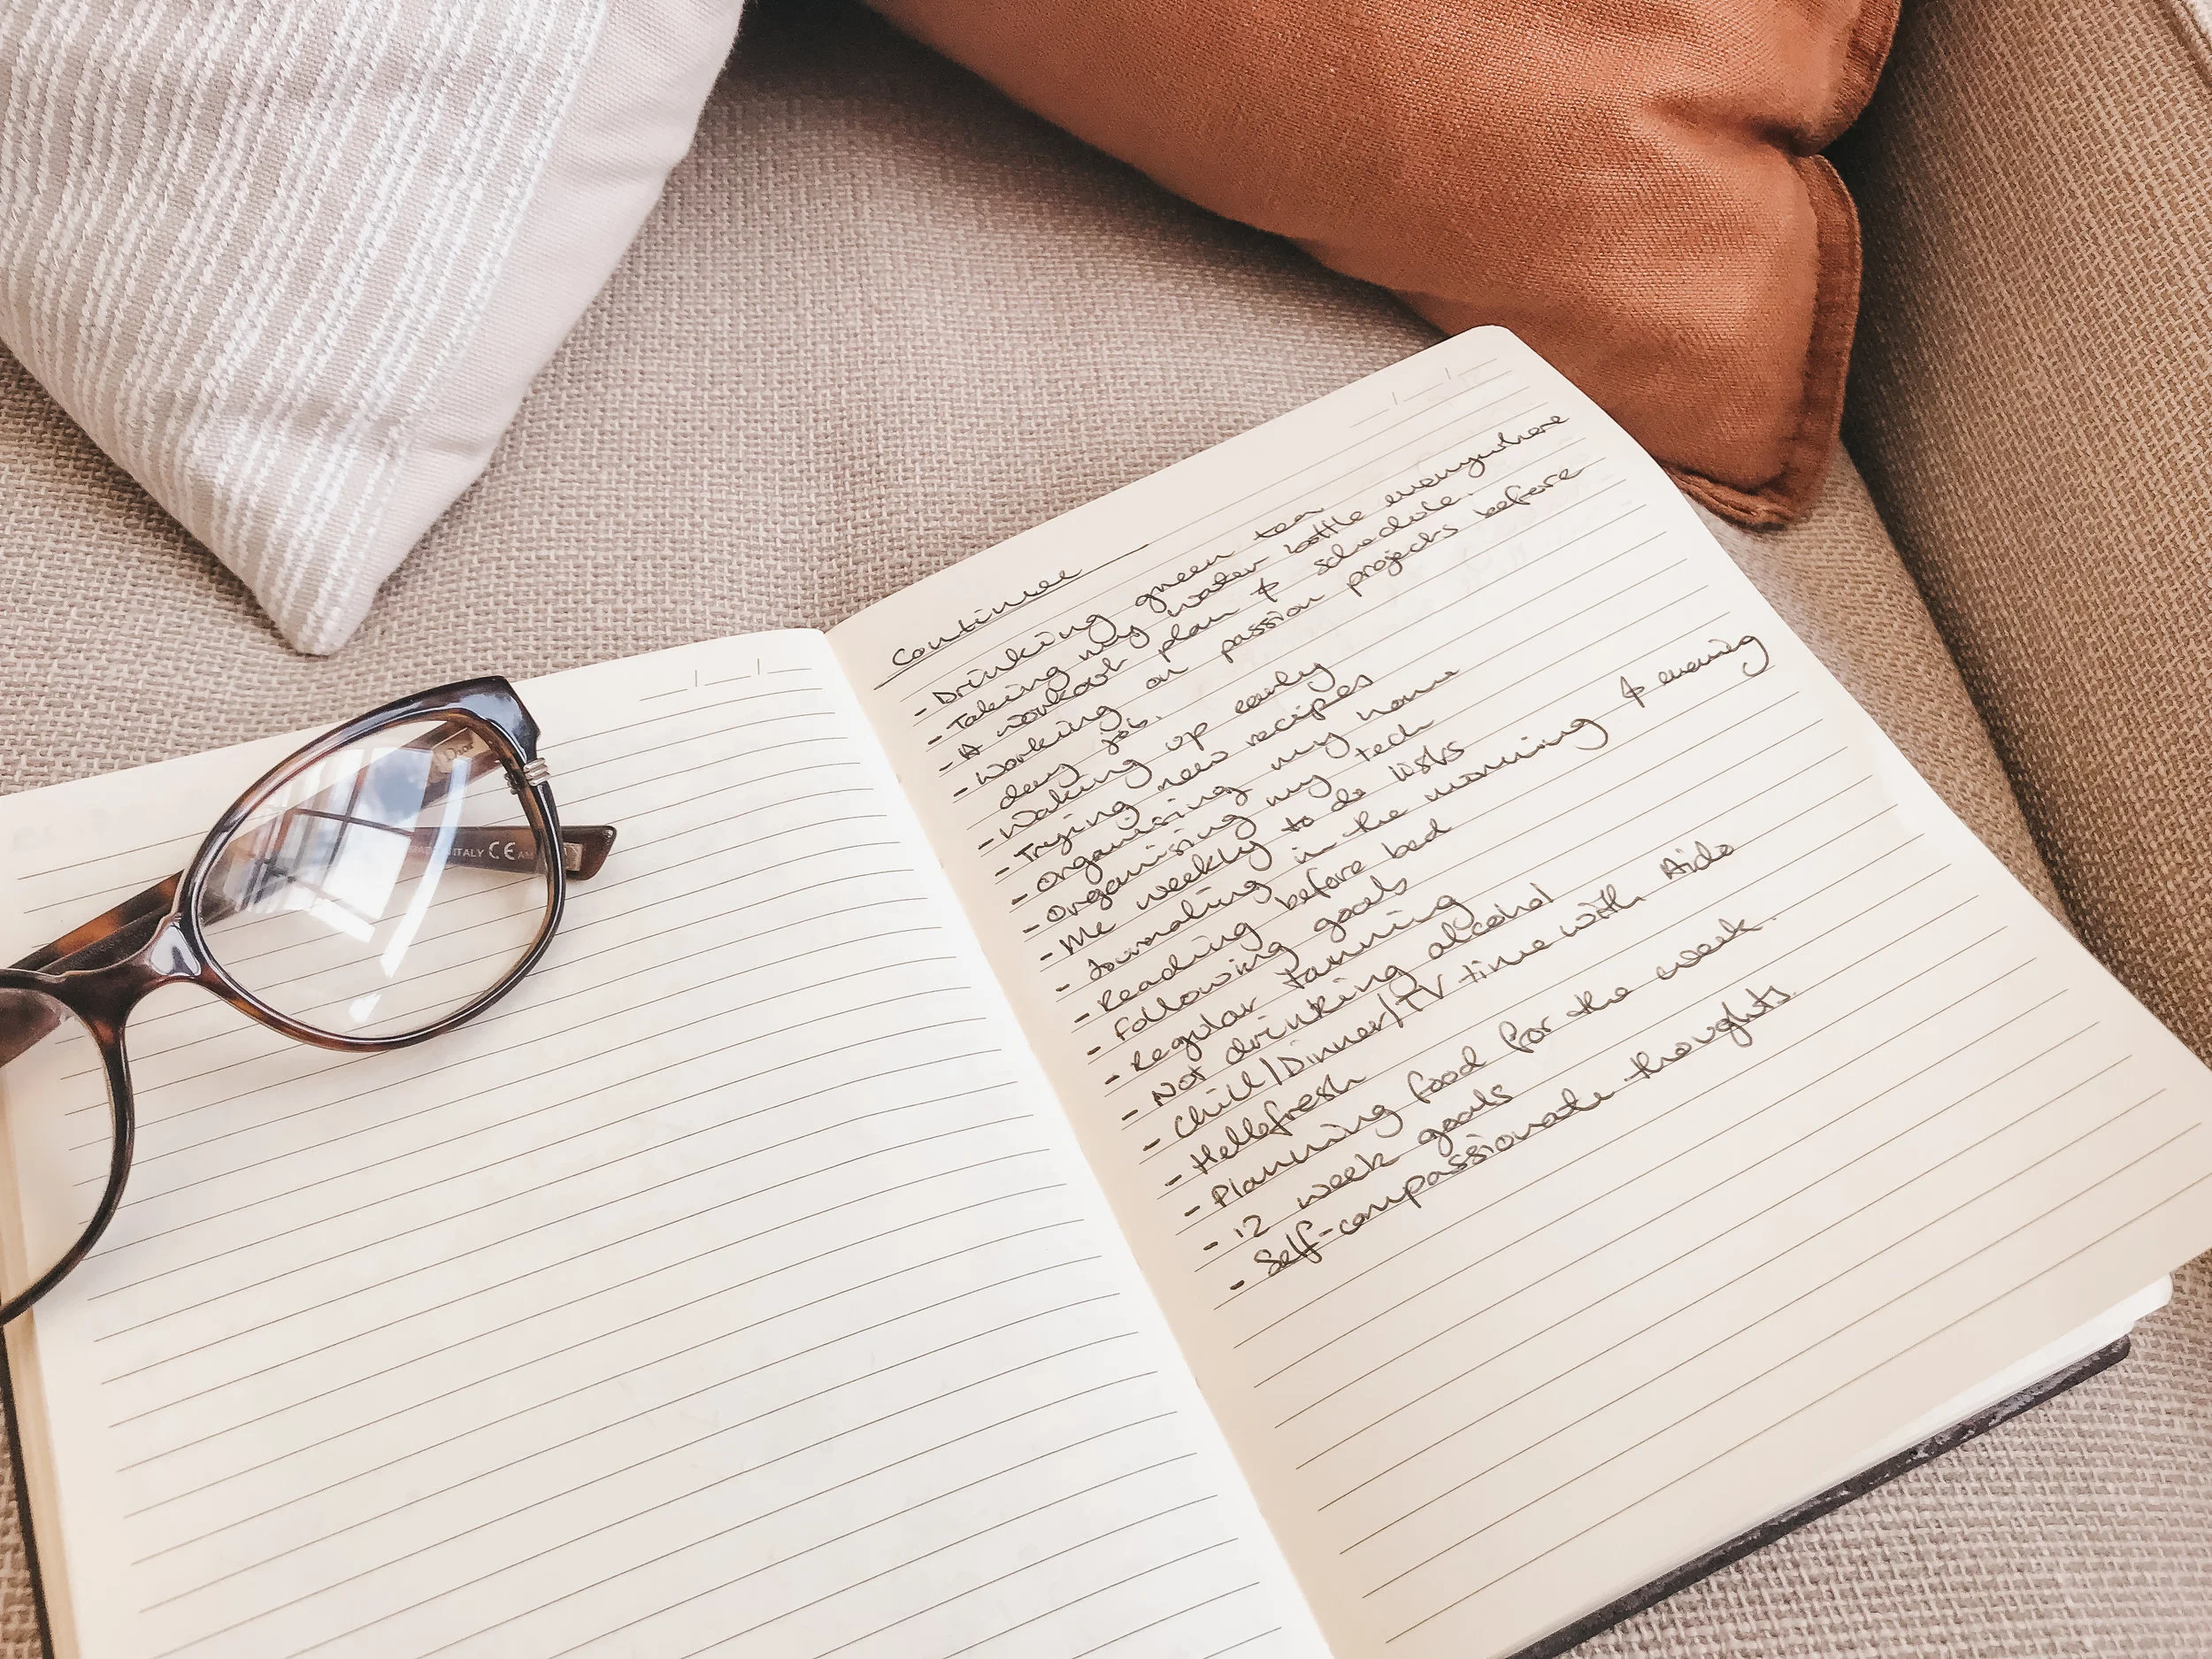 Dior
ITALY CE
Continue
- Drinking green tea
- Taking my water bottle everywhere
- A workout plan & schedule.
- Working on passion projects before
day job.
- Waking up early
- Trying new recipes
- Organising my home
- Organising my tech
- Me weekly to do lists
- Journaling in the morning & evening
- Reading before bed
- Following goals
- Regular tanning
- Not drinking alcohol
- Chill/Dinner/TV time with Aido
- Hellofresh
- Planning food for the week.
- 12 week goals
- Self-compassionate thoughts.